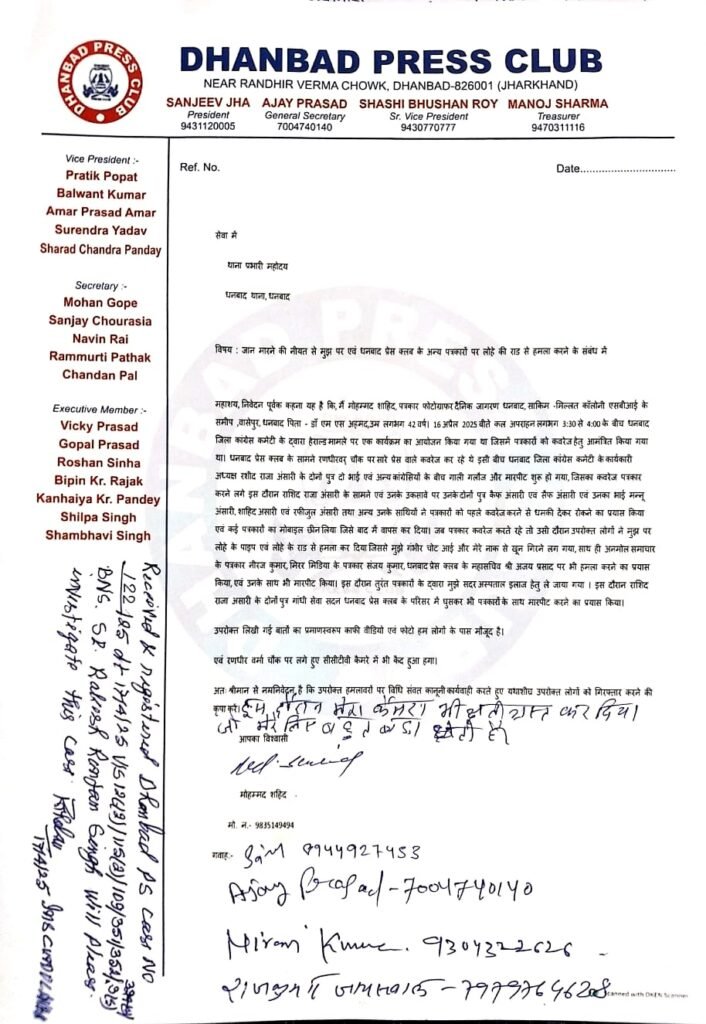 DHANBAD PRESS CLUB
DHANBAD PRESS CLUB
NEAR RANDHIR VERMA CHOWK, DHANBAD-826001 (JHARKHAND)
SANJEEV JHA AJAY PRASAD SHASHI BHUSHAN ROY MANOJ SHARMA
President General Secretary Sr. Vice President Treasurer
9431120005 7004740140 9430770777 9470311116
Vice President :-
Pratik Popat
Balwant Kumar
Amar Prasad Amar
Surendra Yadav
Sharad Chandra Panday
Secretary :-
Mohan Gope
Sanjay Chourasia
Navin Rai
Rammurti Pathak
Chandan Pal
Executive Member :-
Vicky Prasad
Gopal Prasad
Roshan Sinha
Bipin Kr. Rajak
Kanhaiya Kr. Pandey
Shilpa Singh
Shambhavi Singh
Ref. No. Date..............................
सेवा में
थाना प्रभारी महोदय
धनबाद थाना, धनबाद
विषय : जान मारने की नीयत से मुझ पर एवं धनबाद प्रेस क्लब के अन्य पत्रकारों पर लोहे की राड से हमला करने के संबंध में
महाशय, निवेदन पूर्वक कहना यह है कि, मैं मोहम्मद शाहिद, पत्रकार फोटोग्राफर दैनिक जागरण धनबाद, साकिम - मिल्लत कॉलोनी एसबीआई के
समीप ,वासेपुर, धनबाद पिता - डॉ एम एस अहमद,उम्र लगभग 42 वर्ष| 16 अप्रैल 2025 बीते कल अपराहन लगभग 3:30 से 4:00 के बीच धनबाद
जिला कांग्रेस कमेटी के द्वारा हेराल्ड मामले पर एक कार्यक्रम का आयोजन किया गया था जिसमें पत्रकारों को कवरेज हेतु आमंत्रित किया गया
था| धनबाद प्रेस क्लब के सामने रणधीरवर् चौक पर सारे प्रेस वाले कवरेज कर रहे थे इसी बीच धनबाद जिला कांग्रेस कमेटी के कार्यकारी
अध्यक्ष रशीद राजा अंसारी के दोनों पुत्र दो भाई एवं अन्य कांग्रेसियों के बीच गाली गलौज और मारपीट शुरू हो गया, जिसका कवरेज पत्रकार
करने लगे इस दौरान राशिद राजा अंसारी के सामने एवं उनके उकसावे पर उनके दोनों पुत्र कैफ अंसारी एवं सैफ अंसारी एवं उनका भाई मन्नू
अंसारी, शाहिद अंसारी एवं रफीजुल अंसारी तथा अन्य उनके साथियों ने पत्रकारों को पहले कवरेज करने से धमकी देकर रोकने का प्रयास किया
एवं कई पत्रकारों का मोबाइल छीन लिया जिसे बाद में वापस कर दिया। जब पत्रकार कवरेज करते रहे तो उसी दौरान उपरोक्त लोगों ने मुझ पर
लोहे के पाइप एवं लोहे के राड से हमला कर दिया जिससे मुझे गंभीर चोट आई और मेरे नाक से खून गिरने लग गया, साथ ही अनमोल समाचार
के पत्रकार नीरज कुमार, मिरर मिडिया के पत्रकार संजय कुमार, धनबाद प्रेस क्लब के महासचिव श्री अजय प्रसाद पर भी हमला करने का प्रयास
किया, एवं उनके साथ भी मारपीट किया| इस दौरान तुरंत पत्रकारों के द्वारा मुझे सदर अस्पताल इलाज हेतु ले जाया गया | इस दौरान राशिद
राजा अंसारी के दोनों पुत्र गांधी सेवा सदन धनबाद प्रेस क्लब के परिसर में घुसकर भी पत्रकारों के साथ मारपीट करने का प्रयास किया।
उपरोक्त लिखी गई बातों का प्रमाणस्वरूप काफी वीडियो एवं फोटो हम लोगों के पास मौजूद है।
एवं रणधीर वर्मा चौक पर लगे हुए सीसीटीवी कैमरे में भी कैद हुआ हगा।
अतः श्रीमान से नम्रनिवेदन, है कि उपरोक्त हमलावरों पर विधि संवत कानूनी कार्यवाही करते हुए यथाशीघ्र उपरोक्त लोगों को गिरफ्तार करने की
कृपा करें| इस दौरान मेरा कैमरा भी क्षतीग्रस्त कर दिया।
जो मेरे लिए बहुत बड़ा क्षती है।
आपका विश्वासी
मोहम्मद शहिद
मो. न.- 9835149494
गवाह:- 8944927453
Ajay Prasad - 7004740140
Niraj Kumar. 9304322626
7979764628
Scanned with OKEN Scanner
Received & registered Dhanbad PS case NO
122/25 dt 17/4/25 U/S 126(2)/115(2)/109/351/352/3(5)
BNS. S.I. Rakesh Ranjan Singh will please
investigate this case.
17/4/25